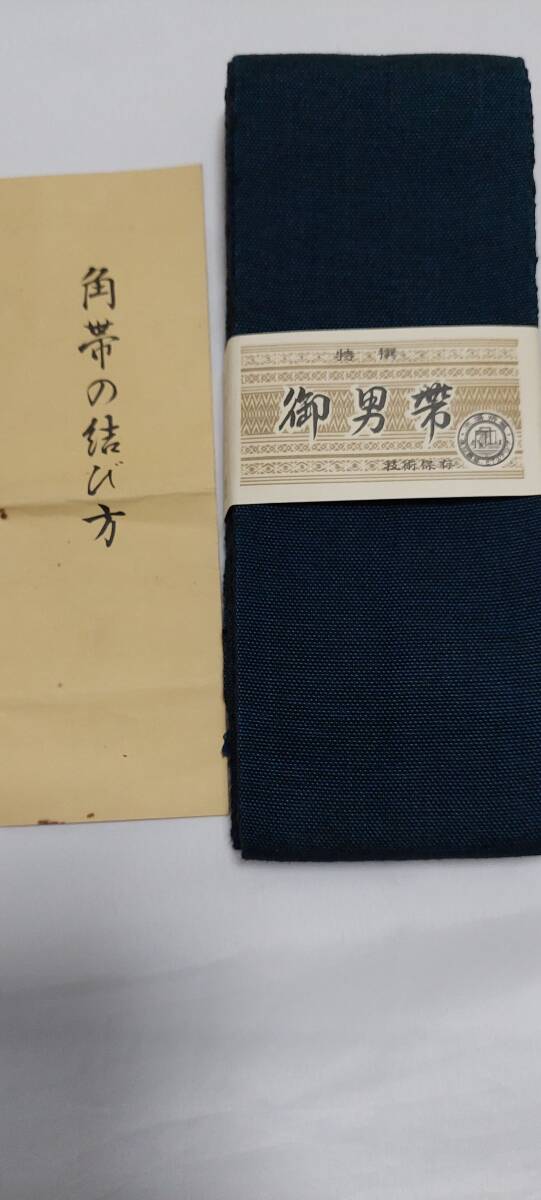 角帯の結び方
特撰
御男帶
技術保存